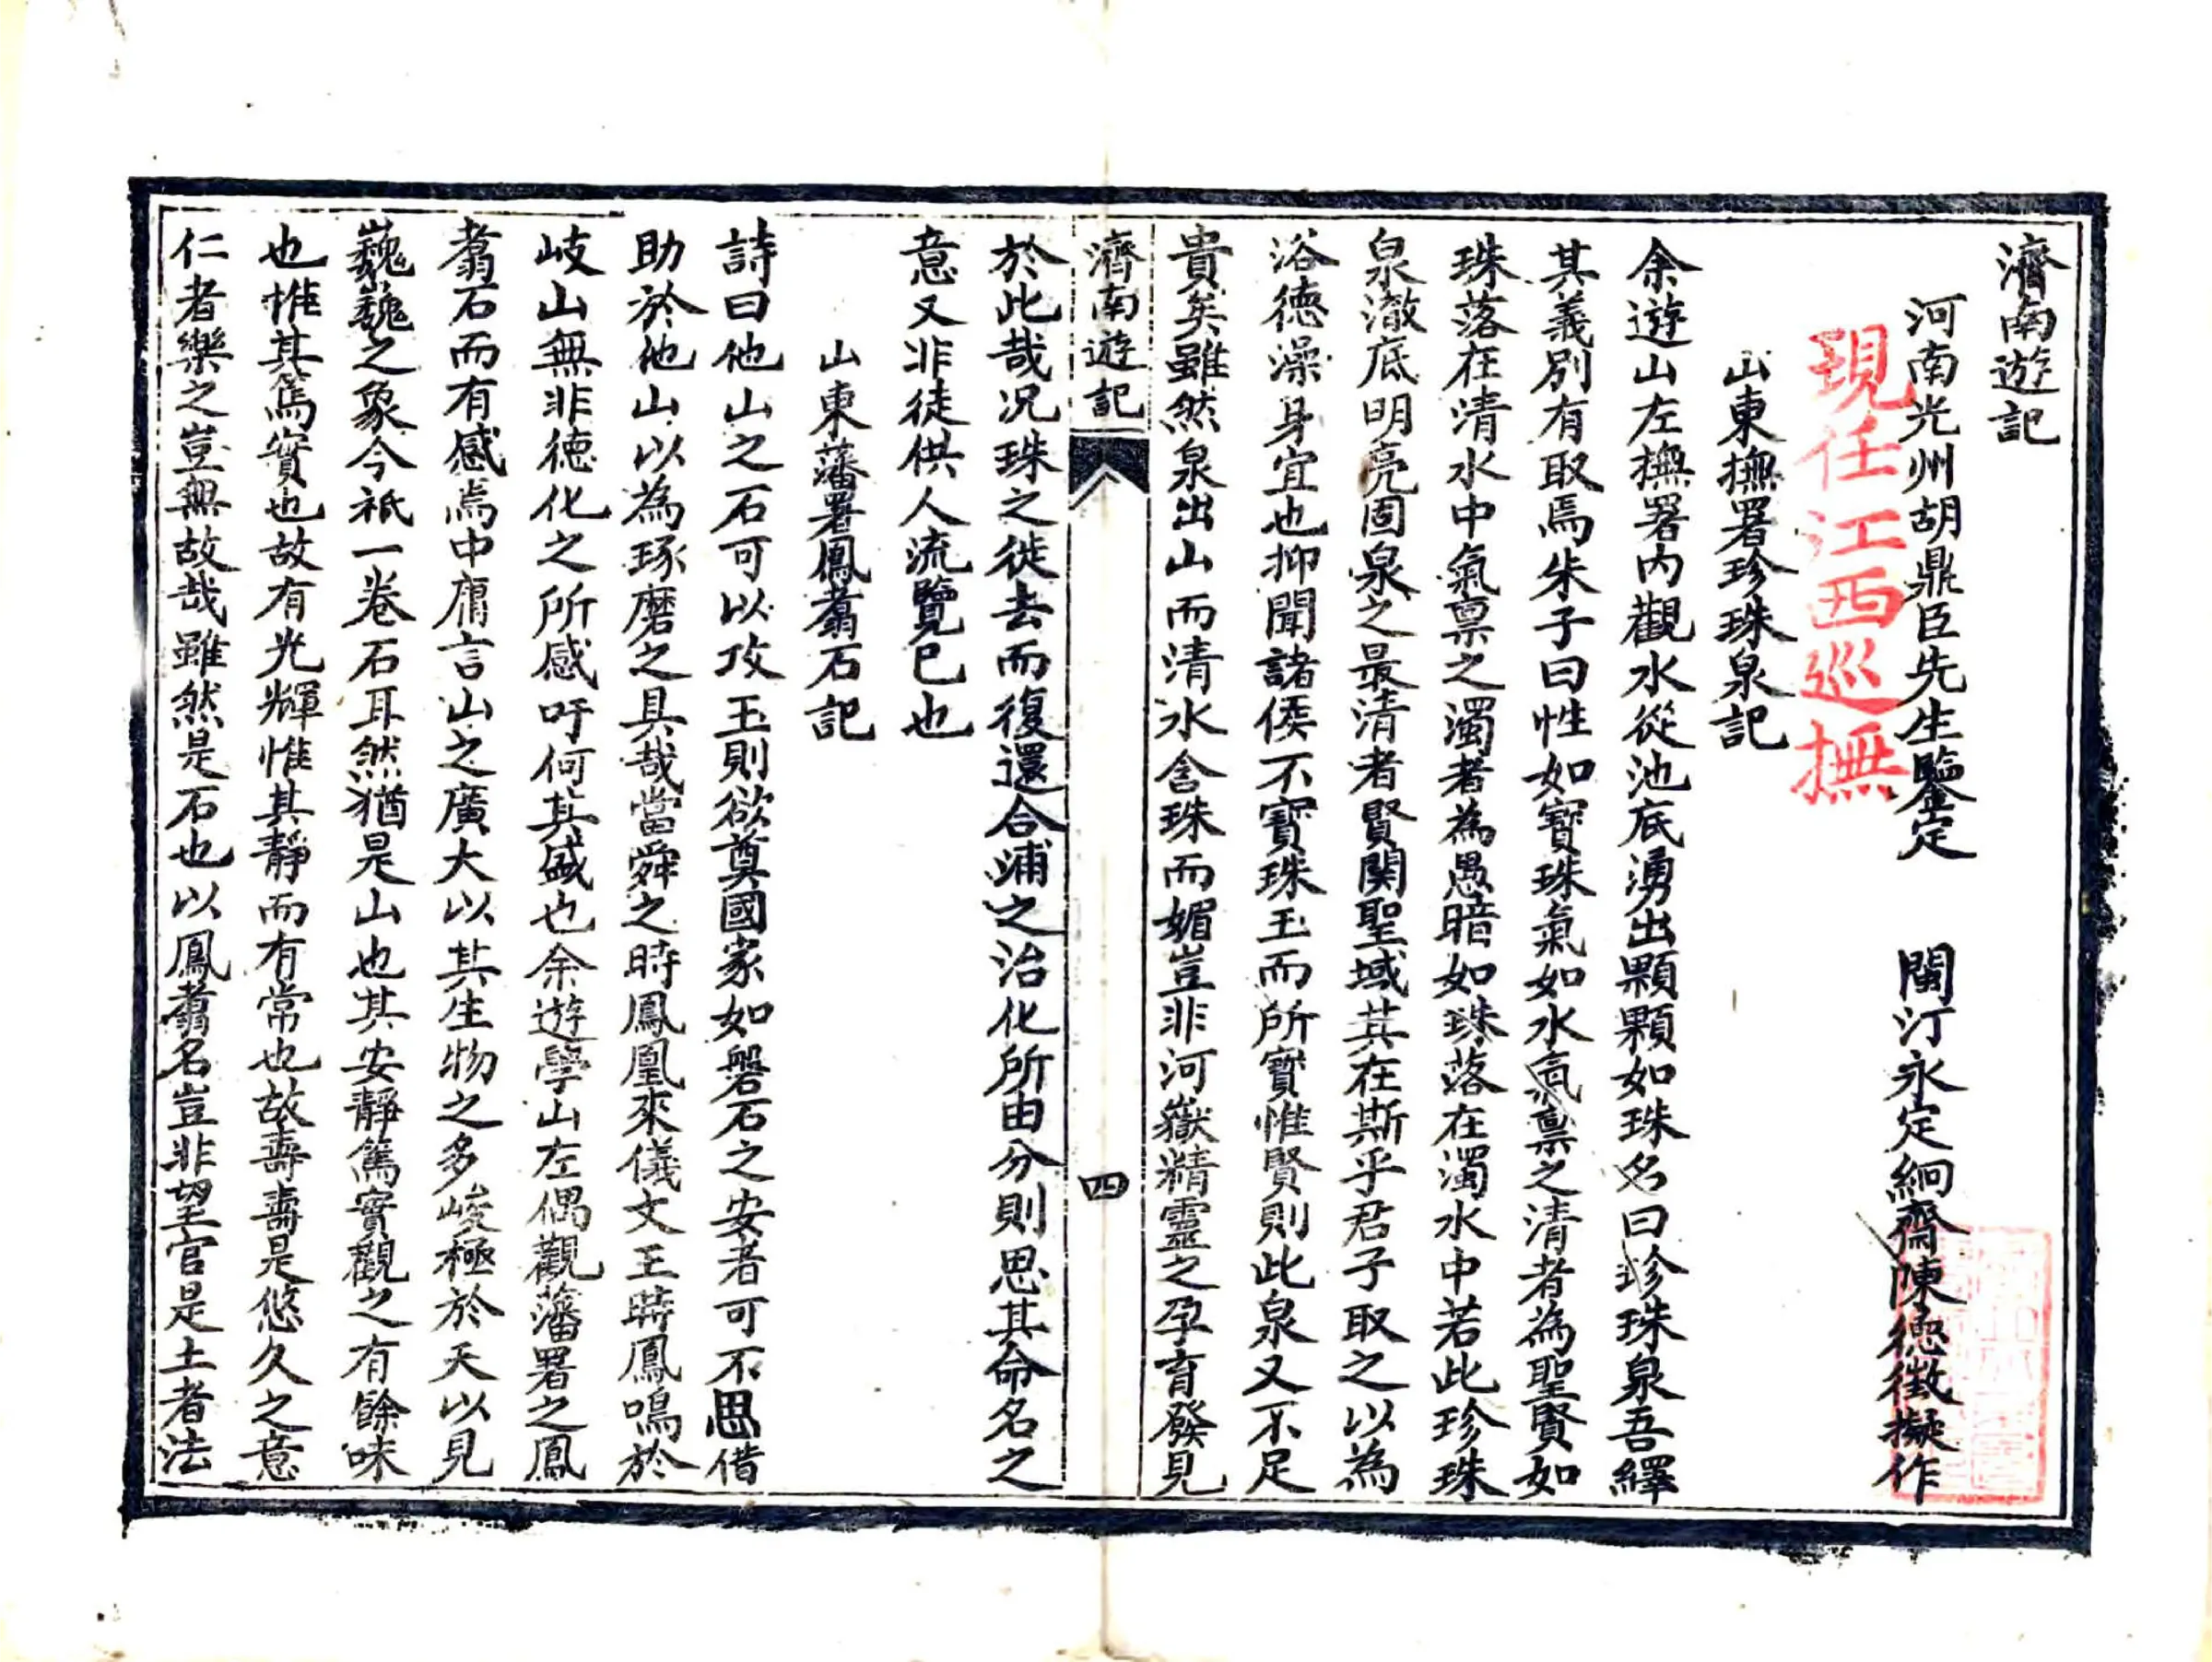 濟南遊記
河南光州胡鼎臣先生鑒定　閩汀永定絅齋陳德徵擬作
現任江西巡撫
山東撫署珍珠泉記
余遊山左撫署內觀水從池底湧出顆顆如珠名曰珍珠泉吾繹
其義別有取焉朱子曰性如寶珠氣如水氣禀之清者為聖賢如
珠落在清水中氣禀之濁者為愚暗如珠落在濁水中若此珍珠
泉澈底明亮固泉之最清者賢関聖域其在斯乎君子取之以為
浴德澡身宜也抑聞諸侯不寶珠玉而所寶惟賢則此泉又不足
貴矣雖然泉出山而清水含珠而媚豈非河嶽精靈之孕育發見
濟南遊記
四
於此哉况珠之徙去而復還合浦之治化所由分則思其命名之
意又非徒供人流覽已也
山東藩署鳳翥石記
詩曰他山之石可以攻玉則欲奠國家如磐石之安者可不思借
助於他山以為琢磨之具哉當舜之時鳳凰來儀文王時鳳鳴於
岐山無非德化之所感吁何其盛也余遊學山左偶觀藩署之鳳
翥石而有感焉中庸言山之廣大以其生物之多峻極於天以見
巍巍之象今祇一卷石耳然猶是山也其安靜篤實觀之有餘味
也惟其篤實也故有光輝惟其靜而有常也故壽壽是悠久之意
仁者樂之豈無故哉雖然是石也以鳳翥名豈非望官是土者法